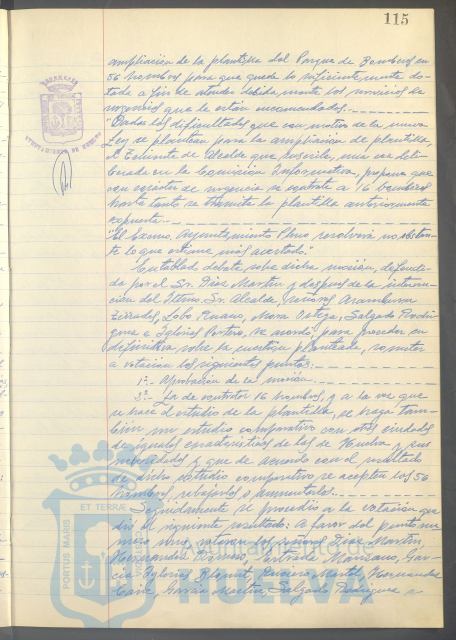 115
ampliación de la plantilla del Parque de Bomberos en
56 hombres para que quede lo suficientemente do-
tado a fin de atender debidamente los servicios de
urgencias que le están encomendados.
"Dadas las dificultades que con motivo de la nueva
Ley se plantean para la ampliación de plantilla,
el Teniente de Alcalde que suscribe, una vez deli-
berada en la Comisión Informativa, propone que
con carácter de urgencia se contrate a 16 bomberos
hasta tanto se tramite la plantilla anteriormente
expuesta.
"El Excmo. Ayuntamiento Pleno resolverá no obstan-
te lo que estime más acertado."
Entablado debate sobre dicha moción, defendi-
da por el Sr. Díaz Martín y después de la interven-
ción del Iltmo. Sr. Alcalde, señores Aramburu
Lobo Ruano, Mora Ortega, Salgado Rodrí-
guez e Iglesias Portero, se acordó, para proceder en
definitiva sobre la cuestión planteada, someter
a votación los siguientes puntos:
1º.- Aprobación de la moción.
La de contratar 16 hombres, y a la vez que
se hace el estudio de la plantilla, se haga tam-
bién un estudio comparativo con otras ciudades
de iguales características de las de Huelva y sus
y que de acuerdo con el resultado
de dicho estudio comparativo se acepten los 56
hombres, rebajarlos o aumentarlos.
Seguidamente se procedió a la votación que
dió el siguiente resultado: A favor del punto nú-
mero uno votaron los señores Díaz Martín,
Hernández Manzano, Gar-
cía Iglesias, Hernández
Cano, García Martín, Salgado Rodríguez e
AYUNTAMIENTO DE HUELVA
PORTUS MARIS ET TERRAE
Ayuntamiento de
HUELVA